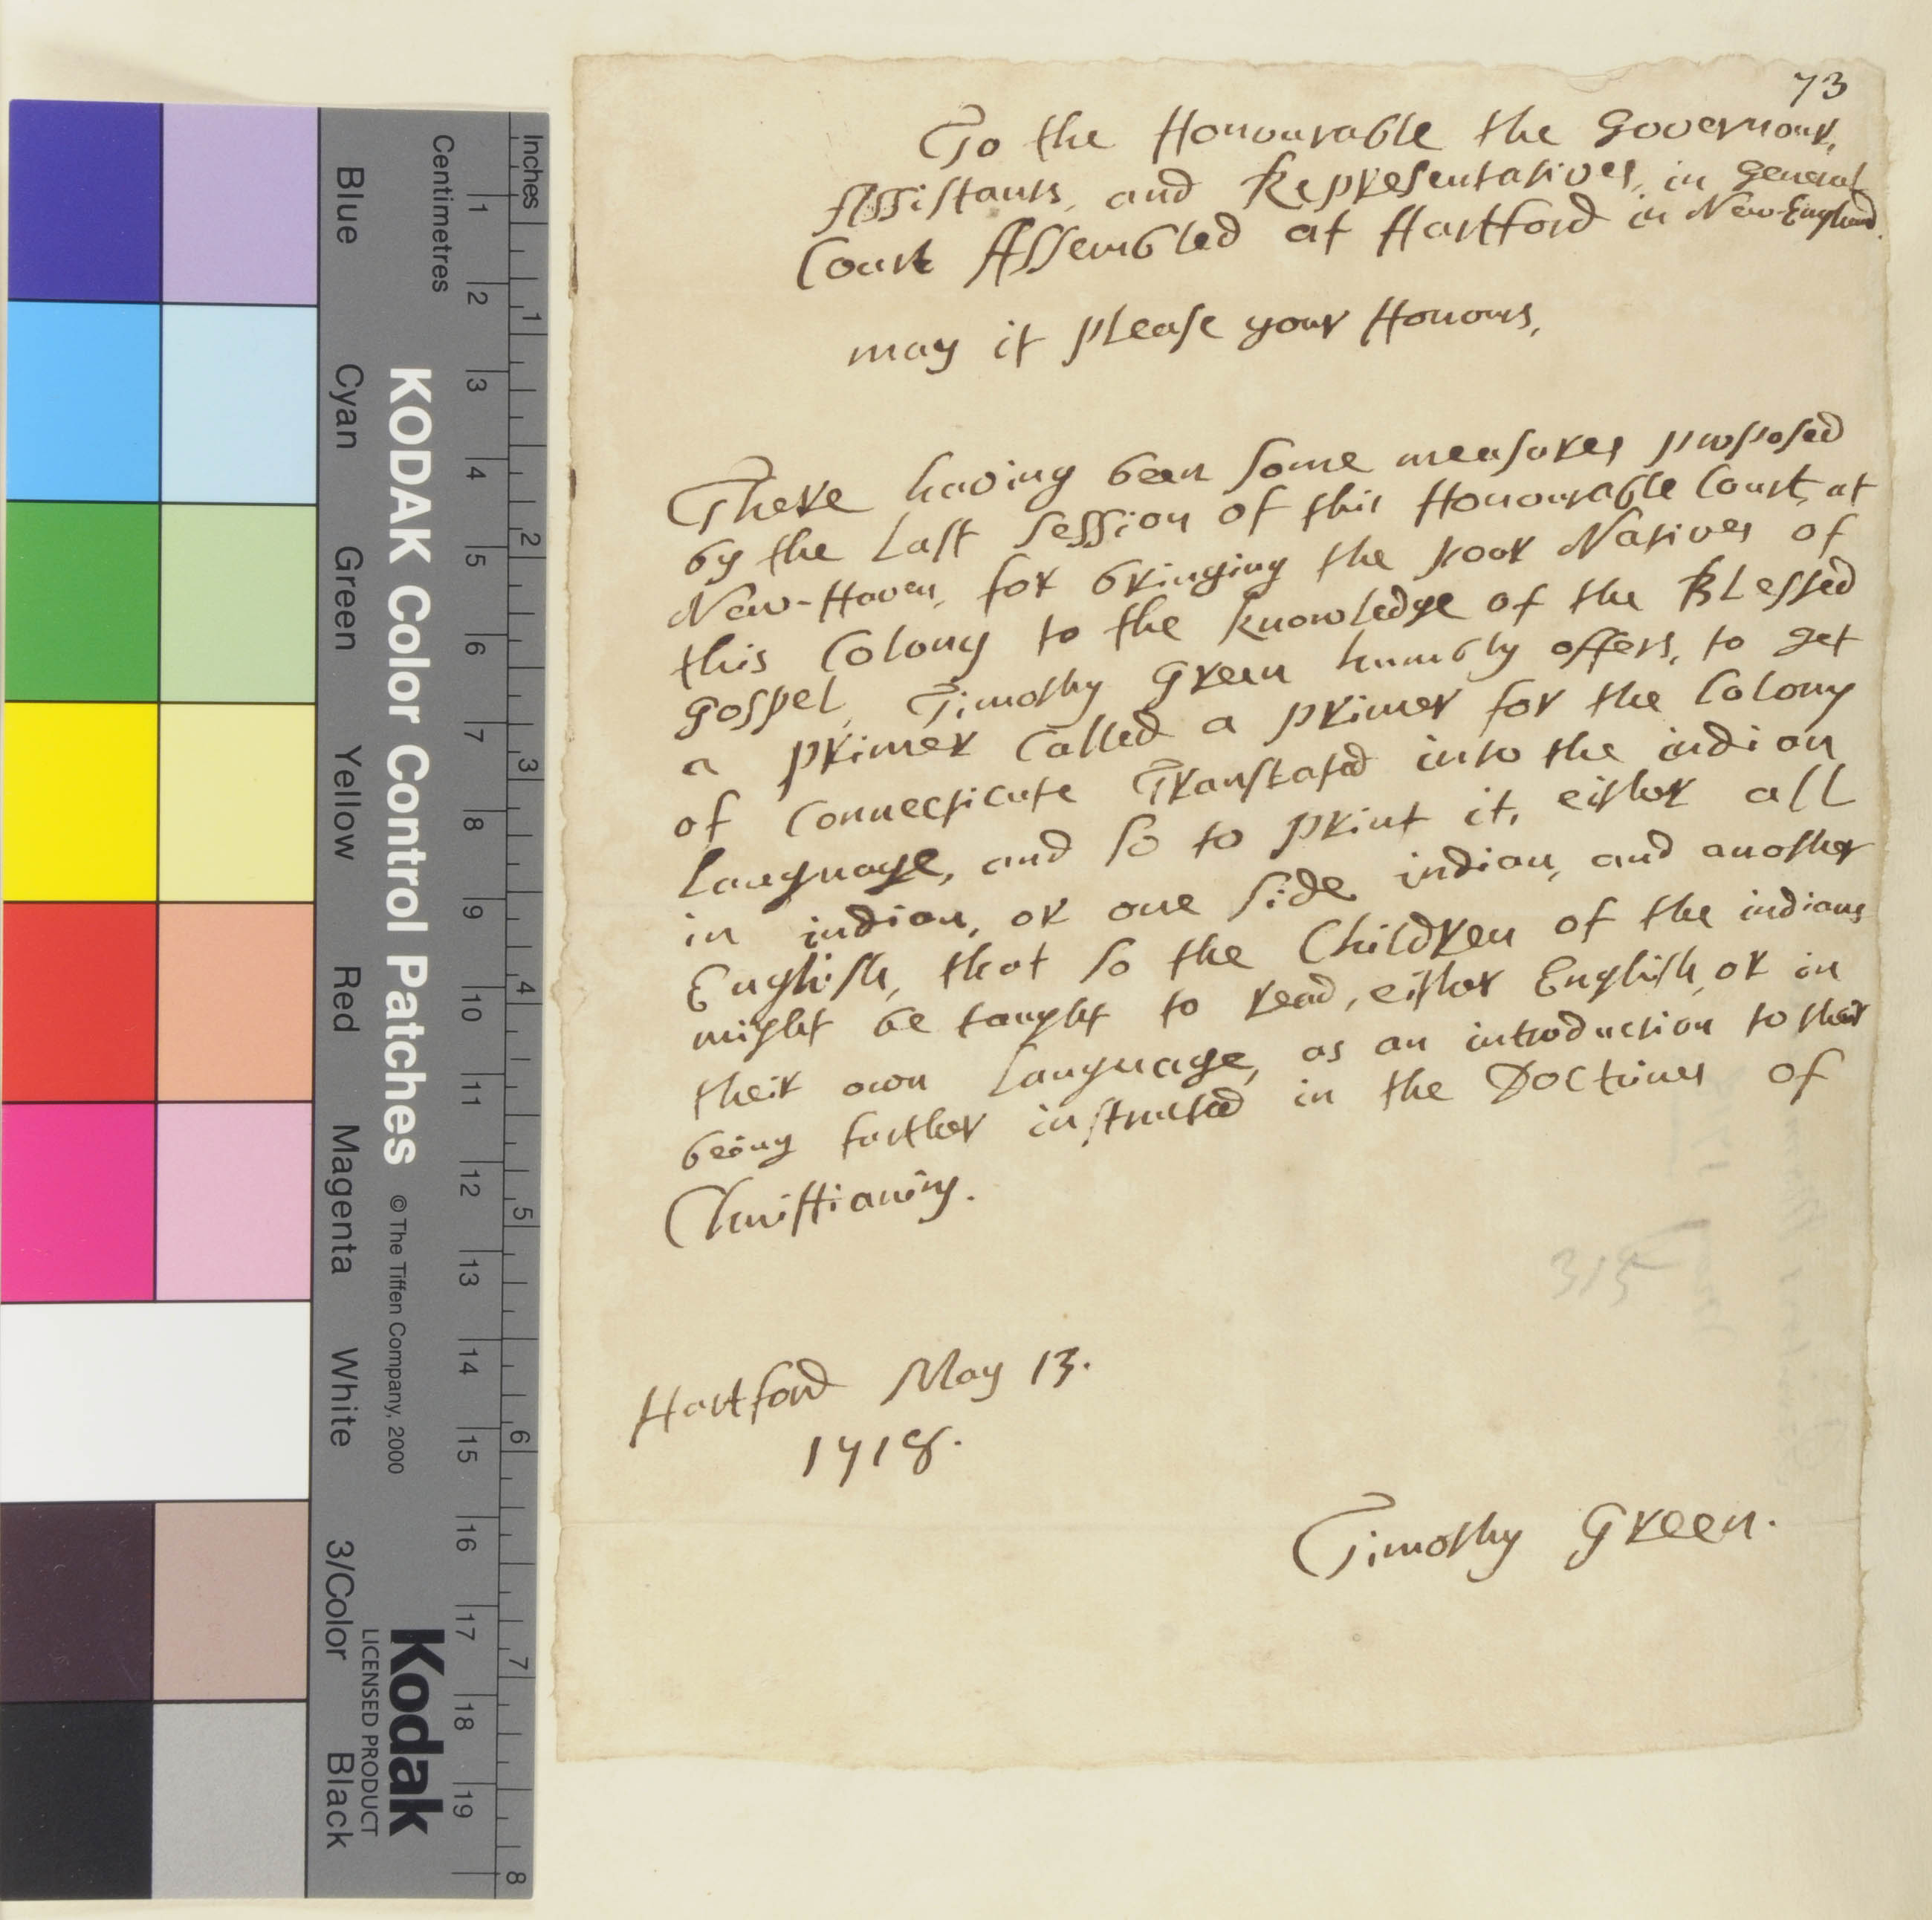 73
To the Honourable the Governour,
Assistants, and Representatives, in General
Court Assembled at Hartford in New-England.
may it please your Honours,
There having been some measures proposed
by the Last Session of this Honourable Court, at
New-Haven, for bringing the poor Natives of
this Colony to the knowledge of the Blessed
Gospel, Timothy Green humbly offers, to get
a primer Called a primer for the Colony
of Connecticutt Translated into the indian
Language, and so to print it, either all
in indian, or one side indian, and another
English, that so the Children of the indians
might be taught to read, either English, or in
their own Language, as an introduction to their
being further instructed in the Doctrines of
Christianity.
Hartford May 13.
1718.
Timothy Green.
315
Inches
Centimetres
1 2 3 4 5 6 7 8
1 2 3 4 5 6 7 8 9 10 11 12 13 14 15 16 17 18 19
KODAK Color Control Patches © The Tiffen Company, 2000
Kodak
LICENSED PRODUCT
Blue
Cyan
Green
Yellow
Red
Magenta
White
3/Color
Black